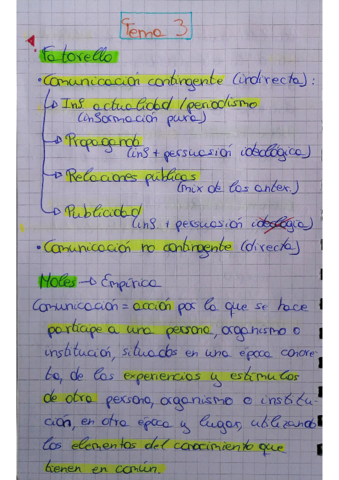 Tema 3
Fatorello
• Comunicación contingente (indirecta):
→ Inf actualidad / periodismo
(información pura)
→ Propaganda
(inf + persuasión ideológica)
→ Relaciones públicas
(mix de las anter.)
→ Publicidad
(inf + persuasión ideológica)
• Comunicación no contingente (directa)
Moles → Empírica
Comunicación = acción por la que se hace
partícipe a una persona, organismo o
institución, situados en una época concre-
ta, de las experiencias y estímulos
de otra persona, organismo o institu-
ción, en otra época y lugar, utilizando
los elementos del conocimiento que
tienen en comun.